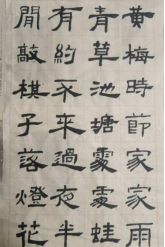 黃梅時節家家雨
青草池塘處處蛙
有約不來過夜半
閒敲棋子落燈花